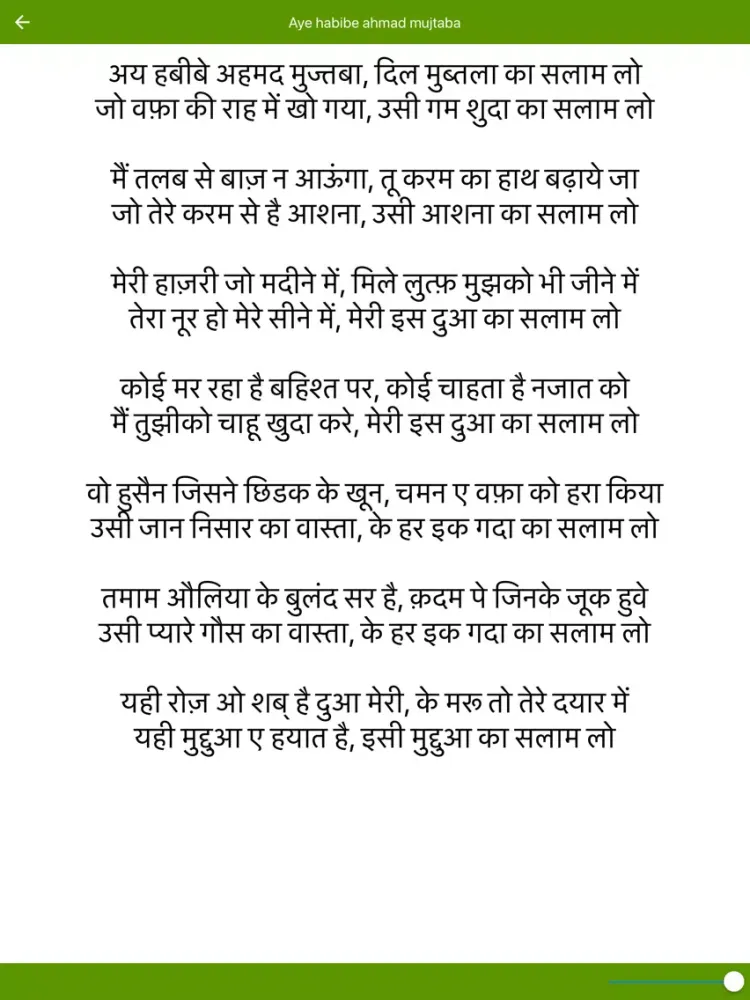 Aye habibe ahmad mujtaba
अय हबीबे अहमद मुज्तबा, दिल मुब्तला का सलाम लो
जो वफ़ा की राह में खो गया, उसी गम शुदा का सलाम लो
मैं तलब से बाज़ न आऊंगा, तू करम का हाथ बढ़ाये जा
जो तेरे करम से है आशना, उसी आशना का सलाम लो
मेरी हाज़री जो मदीने में, मिले लुत्फ़ मुझको भी जीने में
तेरा नूर हो मेरे सीने में, मेरी इस दुआ का सलाम लो
कोई मर रहा है बहिश्त पर, कोई चाहता है नजात को
मैं तुझीको चाहू खुदा करे, मेरी इस दुआ का सलाम लो
वो हुसैन जिसने छिडक के खून, चमन ए वफ़ा को हरा किया
उसी जान निसार का वास्ता, के हर इक गदा का सलाम लो
तमाम औलिया के बुलंद सर है, क़दम पे जिनके जूक हुवे
उसी प्यारे गौस का वास्ता, के हर इक गदा का सलाम लो
यही रोज़ ओ शब् है दुआ मेरी, के मरू तो तेरे दयार में
यही मुद्दुआ ए हयात है, इसी मुद्दुआ का सलाम लो